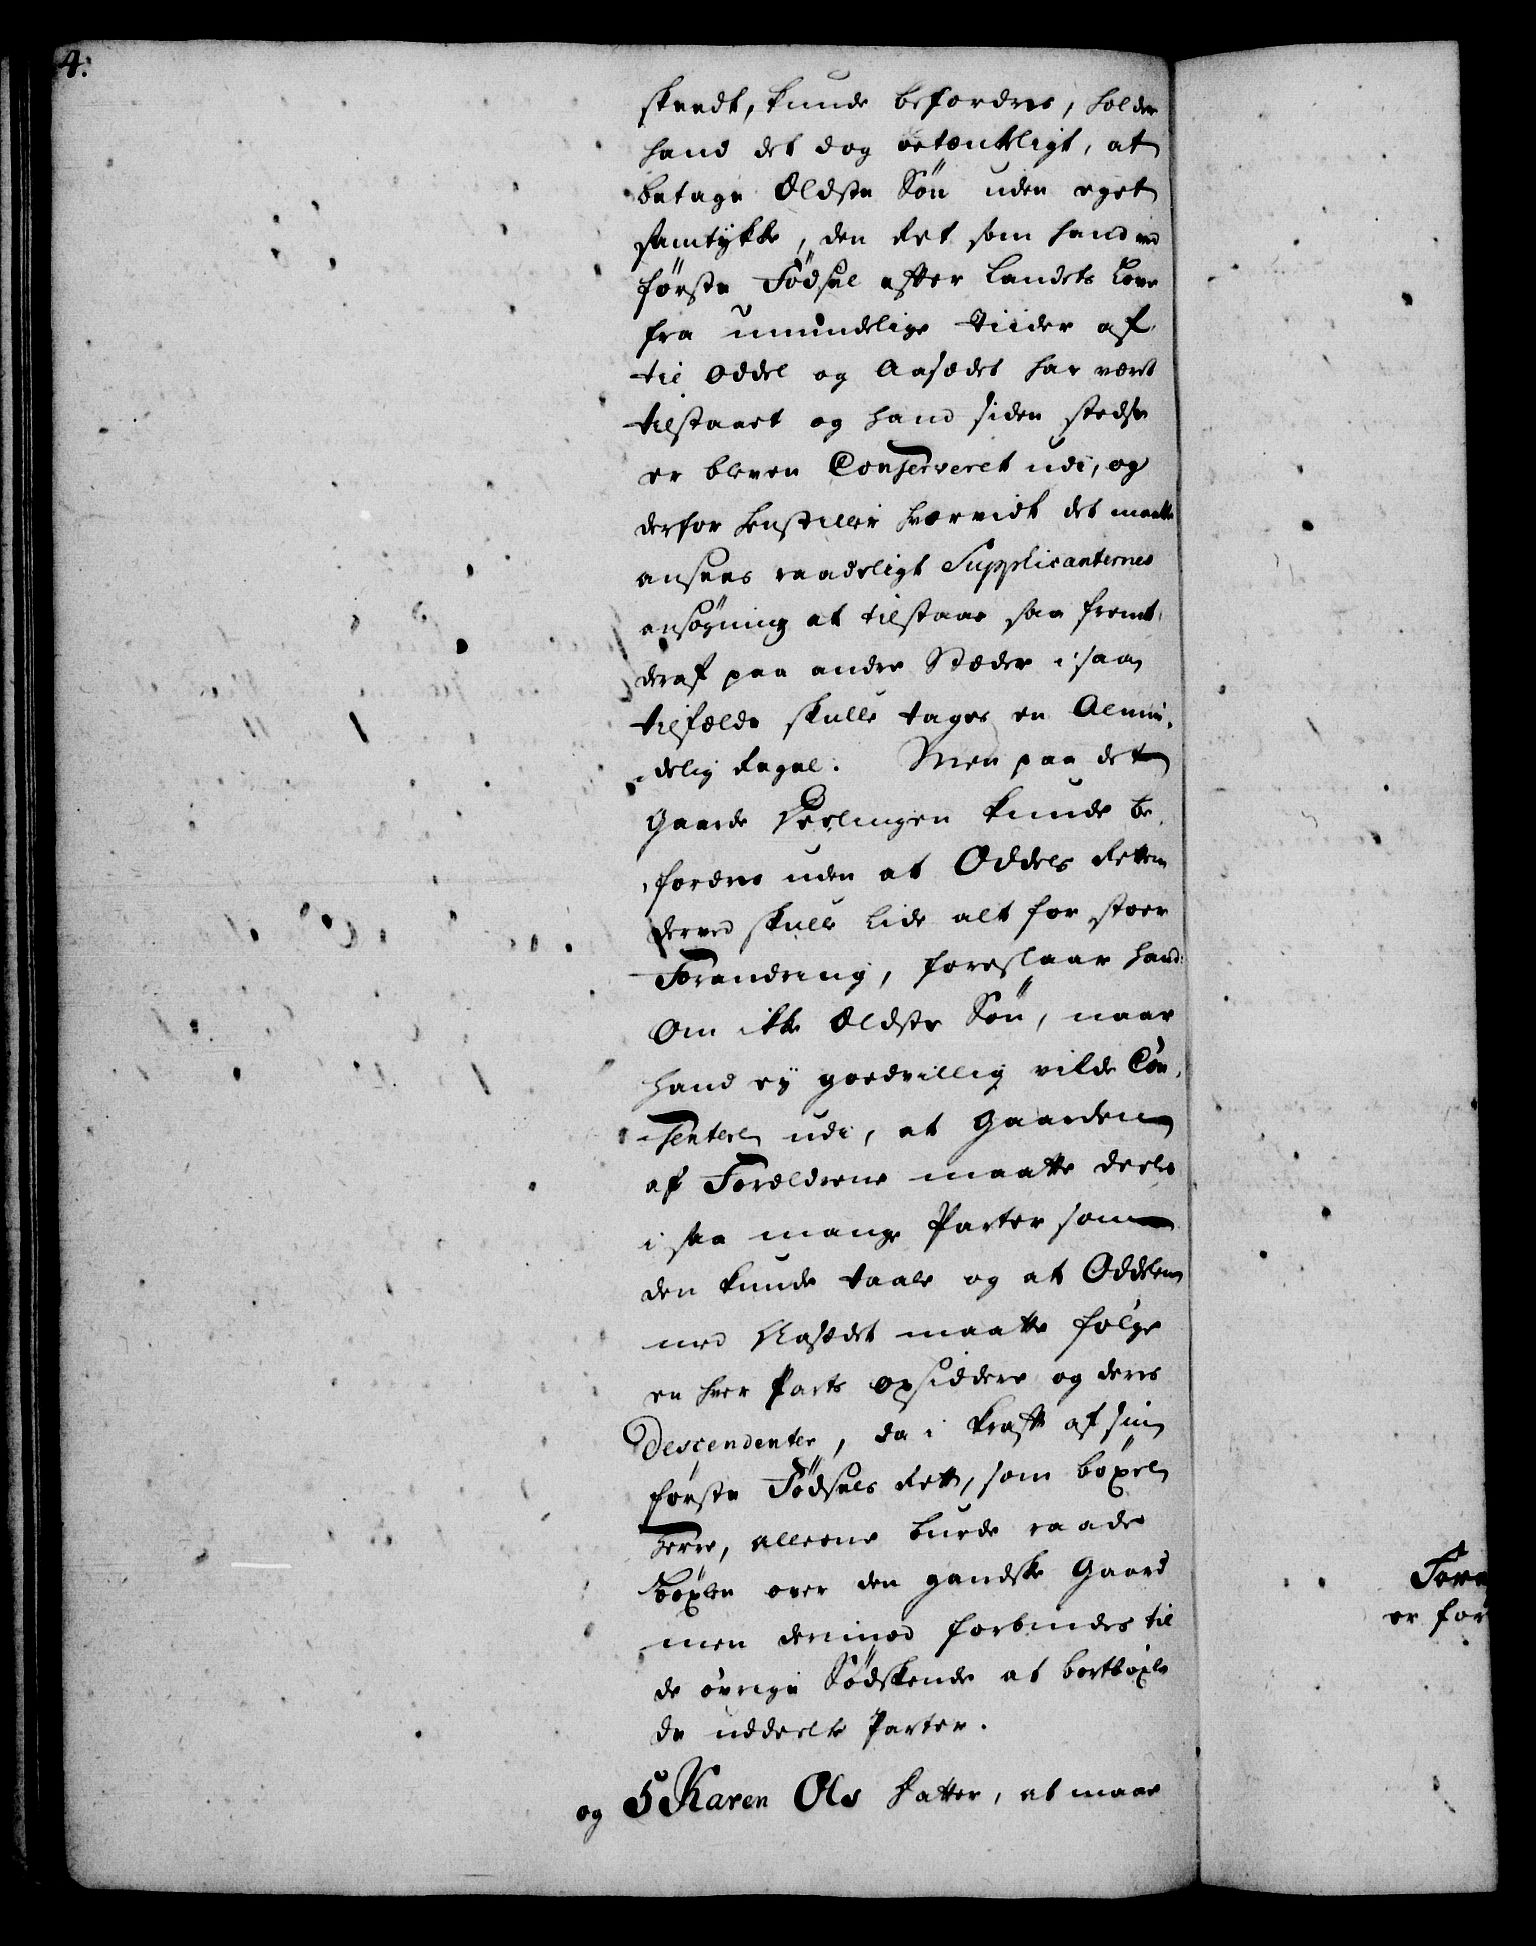 4.
skeedt, kunde befordres, holder
hand det dog betænkeligt, at
betage Ældste Søn uden eget
samtykke, den Ret som hand ved
første Fødsel efter Landets Love
fra umindelige Tiider af
til Oddel og Aasædet har vært
tilstaaet og hand siden stedse
er bleven Conserveret udi, og
derfor henstiller hvorvidt det maatte
ansees raadeligt Supplicanternes
ansøgning at tilstaae saa fremt
deraf paa andre Stæder i saa
tilfælde skulle tages en Almin-
delig Regel. Men paa det
Gaarde Deelingen kunde be-
fordres uden at Oddels Retten
derved skulle lide alt for stoer
Forandring, foreslaar hand:
Om ikke Ældste Søn, naar
hand ey goedvillig vilde Con-
sentere udi, at Gaarden
af Forældrene maatte deeles
i saa mange Parter som
den kunde taale og at Oddelen
med Aasædet maatte følge
en hver Parts opsiddere og deres
Descendenter, da i kraft af sin
første Fødsels Rett, som bøxel
Herre, alleene burde raade
Bøxlen over den gandske Gaard
men derimod forbindes til
de øvrige Sødskende at bortbøxle
de uddeelte Parter.
og 5 Karen Ols Datter, at maae
For
er for